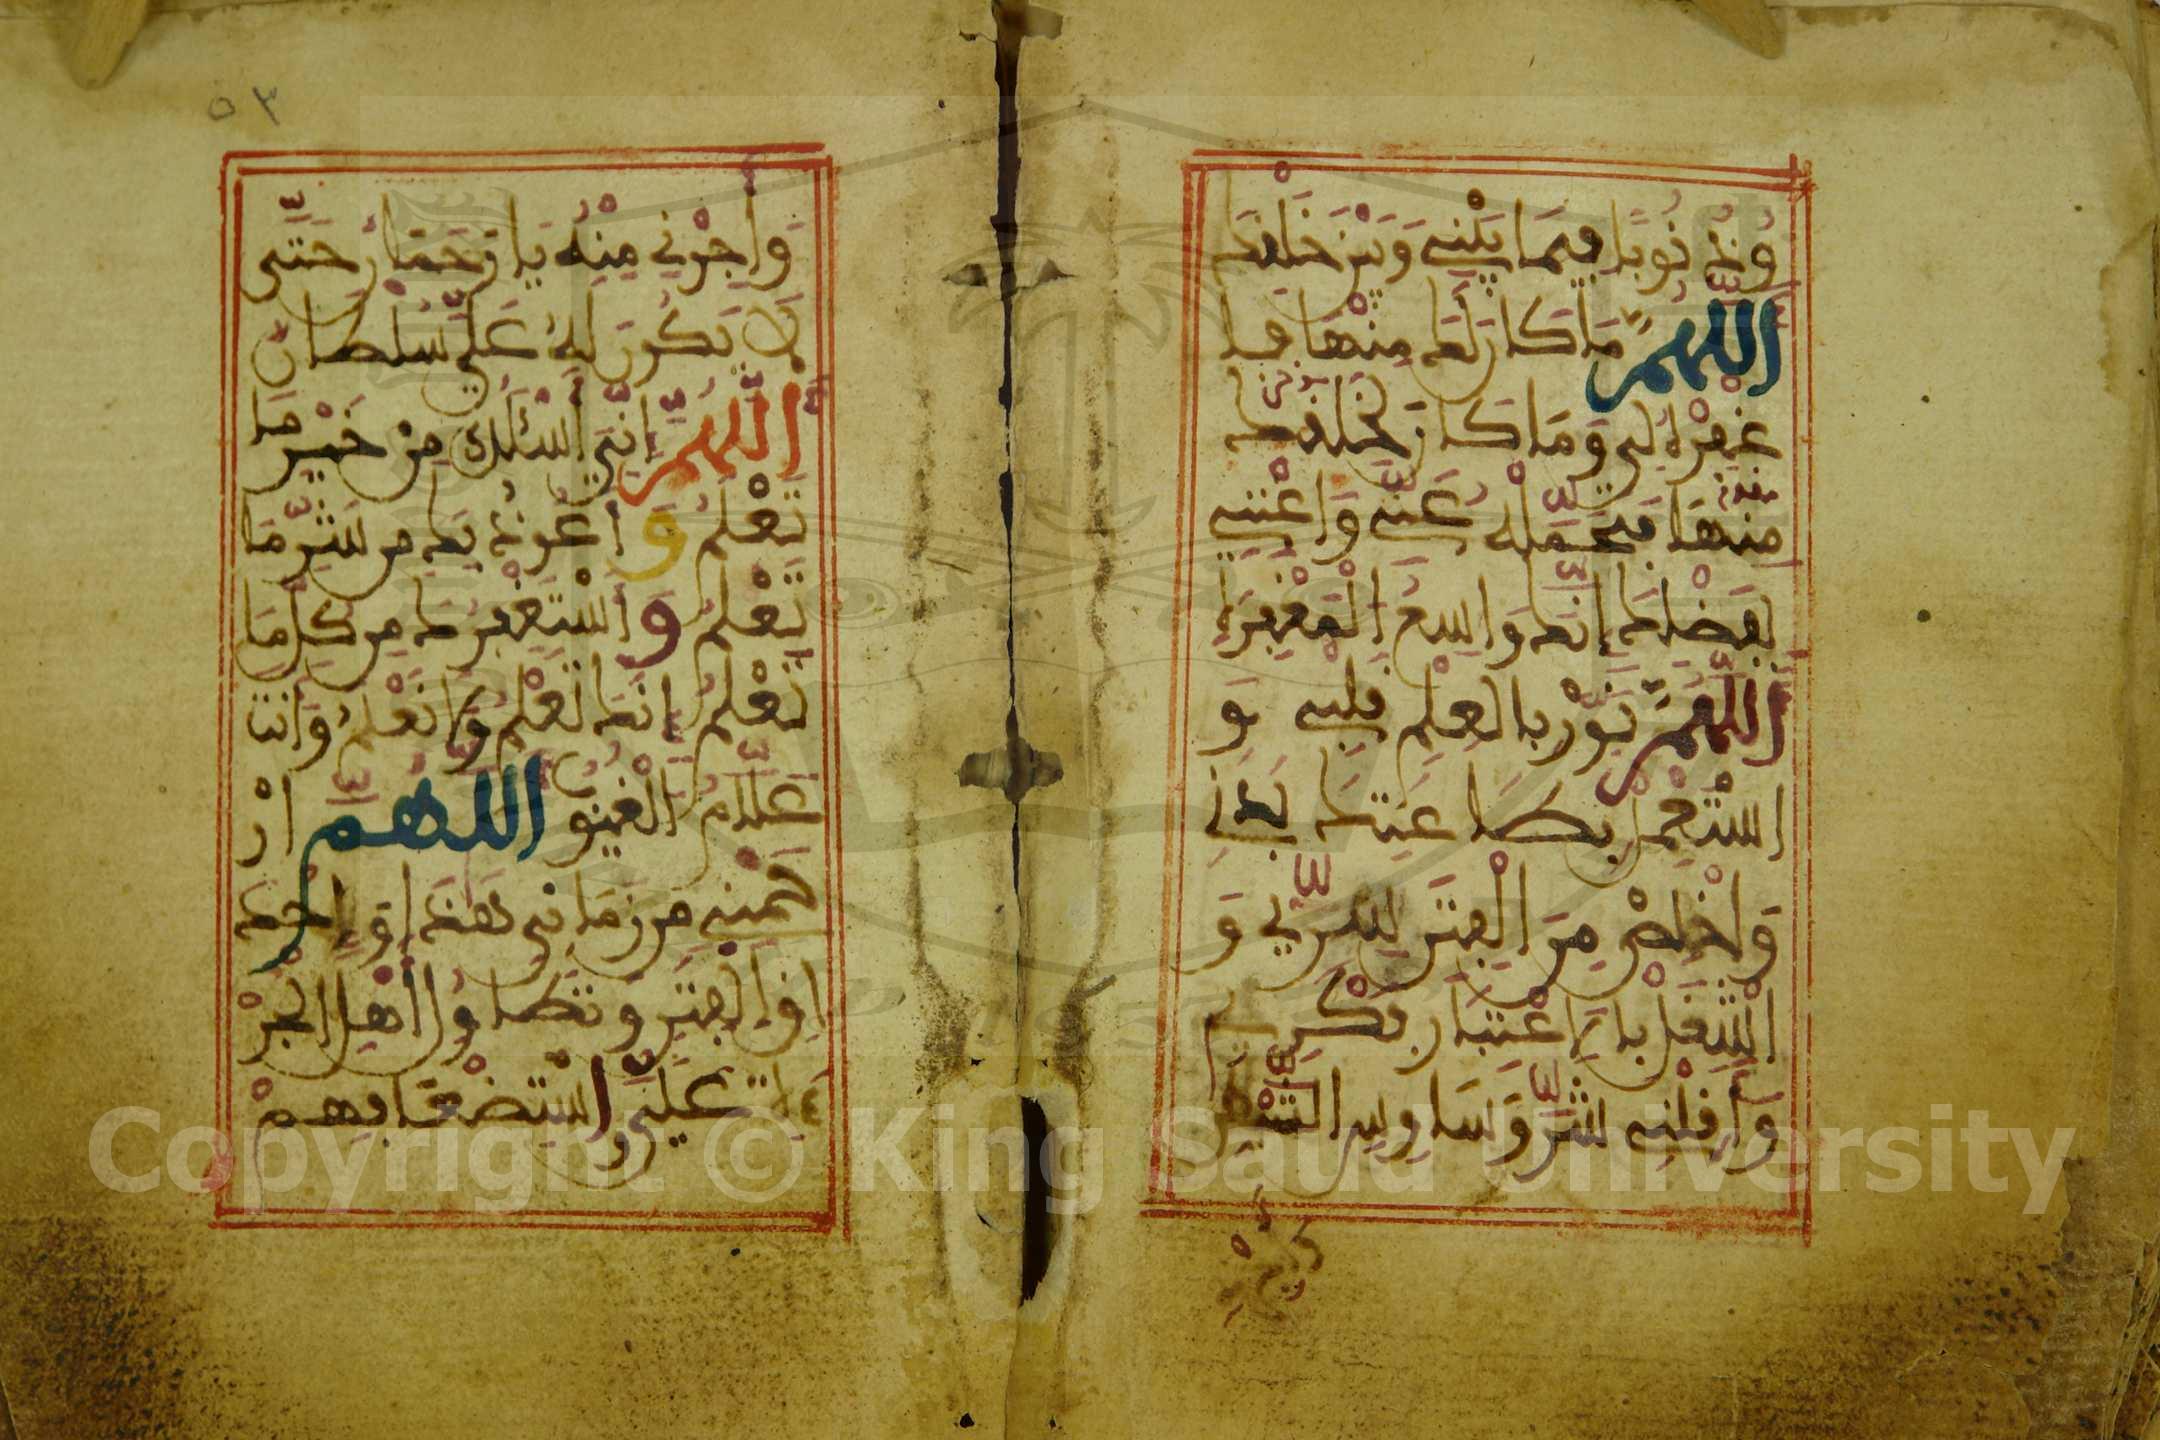 وَذُنُوبًا فِيمَا بَيْنِي وَبَيْنَ خَلْفِكَ
اللهم مَا كَانَ لَكَ مِنْهَا فَا
غْفِرْهُ لِي وَمَا كَانَ لِخَلْفِكَ
مِنْهَا فَتَحَمَّلْهُ عَنِّي وَاغْنِنِي
بِفَضْلِكَ إِنَّكَ وَاسِعُ الْمَغْفِرَةِ
اللَّهُمَّ نَوِّرْ بِالْعِلْمِ قَلْبِي وَ
اسْتَعْمِلْ بِطَاعَتِكَ بَدَنِي
وَخَلِّصْ مِنَ الْفِتَنِ سِرِّي وَ
اشْغَلْ بِالِاعْتِبَارِ فِكْرِي
وَقِنِي شَرَّ وَسَاوِسِ الشَّيْطَانِ
وَأَجِرْنِي مِنْهُ يَا رَحْمَانُ حَتَّى
لَا يَكُونَ لَهُ عَلَيَّ سُلْطَانٌ
اللَّهُمَّ إِنِّي أَسْئَلُكَ مِنْ خَيْرِ مَا
تَعْلَمُ وَأَعُوذُ بِكَ مِنْ شَرِّ مَا
تَعْلَمُ وَأَسْتَغْفِرُكَ مِنْ كُلِّ مَا
تَعْلَمُ إِنَّكَ تَعْلَمُ وَلَا نَعْلَمُ وَأَنْتَ
عَلَّامُ الْغُيُوبِ اللَّهُمَّ ارْ
حَمْنِي مِنْ زَمَانِي هَذَا وَإِحْدَ
اقِ الْفِتَنِ وَتَطَاوُلِ أَهْلِ الْجُرْ
أَةِ عَلَيَّ وَاسْتِضْعَافِهِمْ
٥٣
Copyright © King Saud University